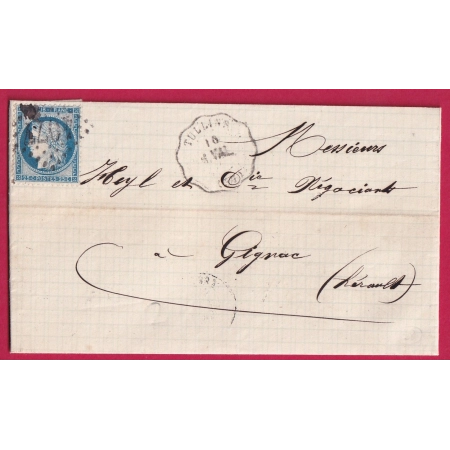 TULLINS
10
Messieurs
Heyl et Cie Négociants
à Gignac
(Hérault)